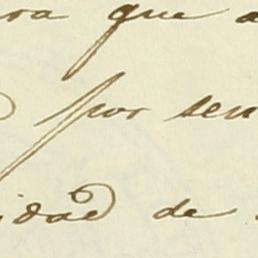 ra que a
por sen
idad de